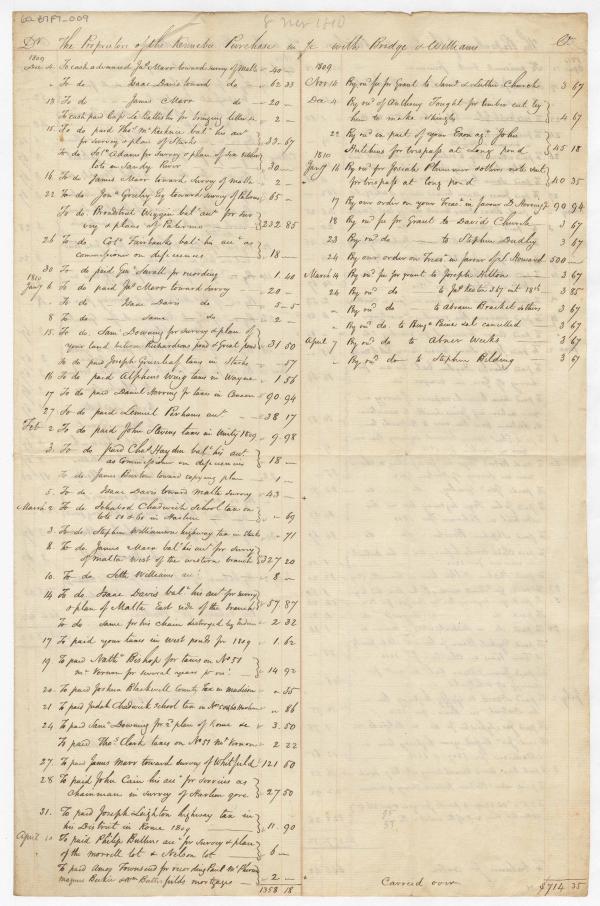 62.E7F7_009
8 Nov 1810
Dr The Proprietors of the Kennebec Purchase in % with Bridge & Williams Cr
1809
Dec 4. To cash advanced Jas. Marr toward survey of Malta 40 —
" To do Isaac Davis toward do 62 33
13. To do James Marr do 20 —
To cash paid Capt 2 —
15. To do paid Thos. McKechnie bal. his acct
for survey & plan of Starks 33.67
To do Solo. Adams for survey & plan of
lots on Sandy River 30 —
16 To do James Marr toward survey of Malta 2 —
22 To do Jona. Greeley Esq toward survey of Palermo 65 —
To do Broadstreet Wiggin bal. acct for sur
vey & plans of Palermo 232 85
26 To do Colo. Fairbanks bal. his acct as
commissioner on deficiences 18 —
30 To do paid Genl. Sewall for recording 1 40
1810
Jany 6 To do paid Jas. Marr toward survey 20 —
To do Isaac Davis do 5-5
8 To do same do 2 —
15. To do Saml. Downing for survey & plan of
your land between Richardsons pond & Great pond 31 50
To do paid Joseph Greenleaf taxes in Starks 57
16 To do paid Alpheus Wing taxes in Wayne 1.56
17 To do paid Daniel Stevens for taxes in Canaan 90 94
27 To do paid Lemuel Perhams acct 38 17
Feb 2 To do paid John Stevens taxes in Unity 1809 9.98
3. To do paid Chas. Hayden bal. his acct
as Commissioner on deficiences 18 —
To do James Burton toward copying plan 1 —
5. To do Isaac Davis toward Malta survey 43 —
March 2 To do Ichabod Chadwick School tax on
lots 58 & 60 in Harlem " 69
3. To do Stephen Williamson highway tax in Starks " 71
8 To do James Marr bal. his acct for survey
of Malta West of the western branch 327 20
10. To do Seth Williams acct 8 —
14 To do Isaac Davis bal. his acct for survey
& plan of Malta East side of the branch 57.87
To do Same for his chain destroyed by Indians 2 32
17 To paid your taxes in West ponds for 1809 1.62
19 To paid Nathl. Bishop for taxes on No 51
Mt. Vernon for several years 14 92
20. To paid Joshua Blackwell County tax in Madison " 35
21 To paid Judah Chadwick School tax in Harlem " 86
24 To paid Saml. Downing for 2 plan of Rome &c 3.50
To paid Thos. Clark taxes on No 51 Mt Vernon 2 22
27. To paid James Marr toward survey of Whitefield 121 60
28 To paid John Cain his acct for services as
chainman in survey of Harlem gore 27 50
31. To paid Joseph Leighton highway tax in
his District in Rome 1809 11.90
April 10 To paid Philip Bullens acct for survey & plan
of the morrell lot & Nelson lot 6 —
To paid Amos Townsend for recording
mortgages — 2 —
1358 18
1809.
Nov 14 By recd. fee for Grant to Saml. & Luther Church 3 67
Dec 4 By recd. of Anthony Fought for timber cut by
him to make shingles 4 67
22 By recd. in part of your Exon agt. John
Hutchins for trespass at Long pond 45 18
1810
Jany 16 By recd. for Josiah Plummer note
for trespass at Long pond 40 35
17 By our order on your Treasr. in favour D. Stevens 90 94
18 By recd. fee for Grant to David Church 3 67
23 By recd. do — to Stephen Dudly 3 67
24 By our order on Treasr. in favour of S. Howard 500 —
March 14 By recd. fee for grant to Joseph Hilton 3 67
24 By recd. do to 3 25
" By recd. do to Abram Bracket 3 67
" By recd. do to Benja. cancelled 3 67
April 7 By recd. do to Abner Weeks 3 67
" By recd. do to Stephen Belding 3 67
Carried over $714 35